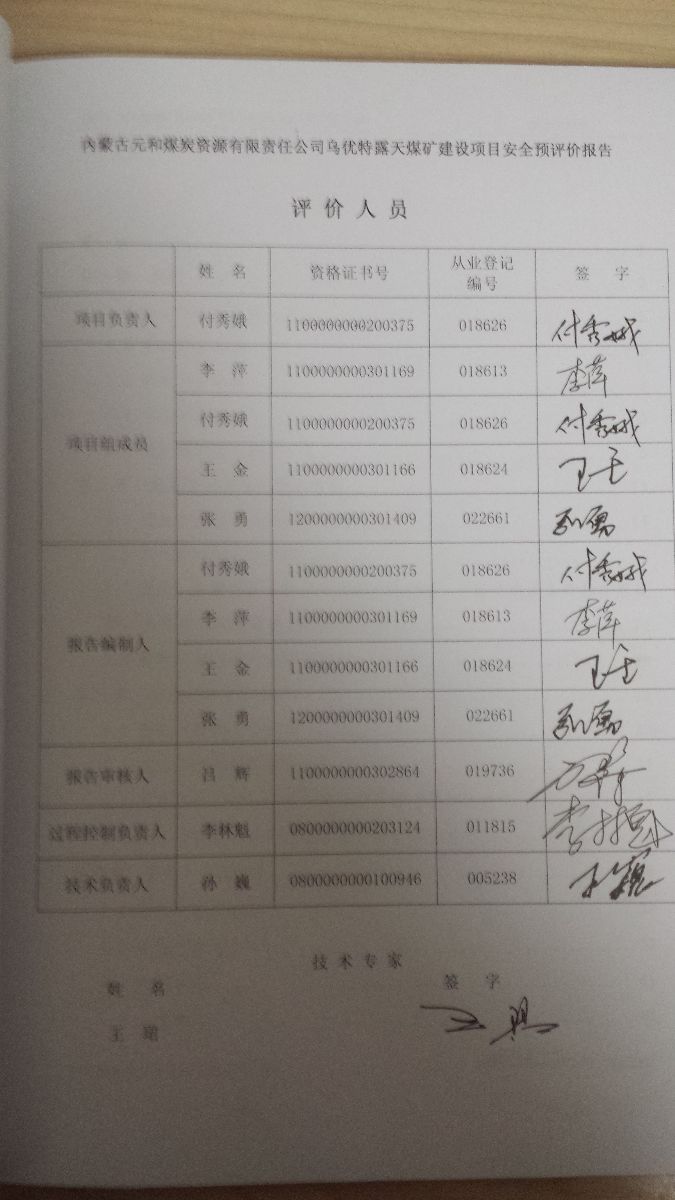 内蒙古元和煤炭资源有限责任公司乌优特露天煤矿建设项目安全预评价报告
评价人员
姓 名 资格证书号 从业登记编号 签 字
项目负责人 付秀娥 1100000000200375 018626 付秀娥
项目组成员 李 萍 1100000000301169 018613 李萍
付秀娥 1100000000200375 018626 付秀娥
王 金 1100000000301166 018624 王金
张 勇 1200000000301409 022661 张勇
报告编制人 付秀娥 1100000000200375 018626 付秀娥
李 萍 1100000000301169 018613 李萍
王 金 1100000000301166 018624 王金
张 勇 1200000000301409 022661 张勇
报告审核人 吕 辉 1100000000302864 019736
过程控制负责人 李林魁 0800000000203124 011815 李林魁
技术负责人 孙 巍 0800000000100946 005238 孙巍
技术专家
姓 名 签 字
王